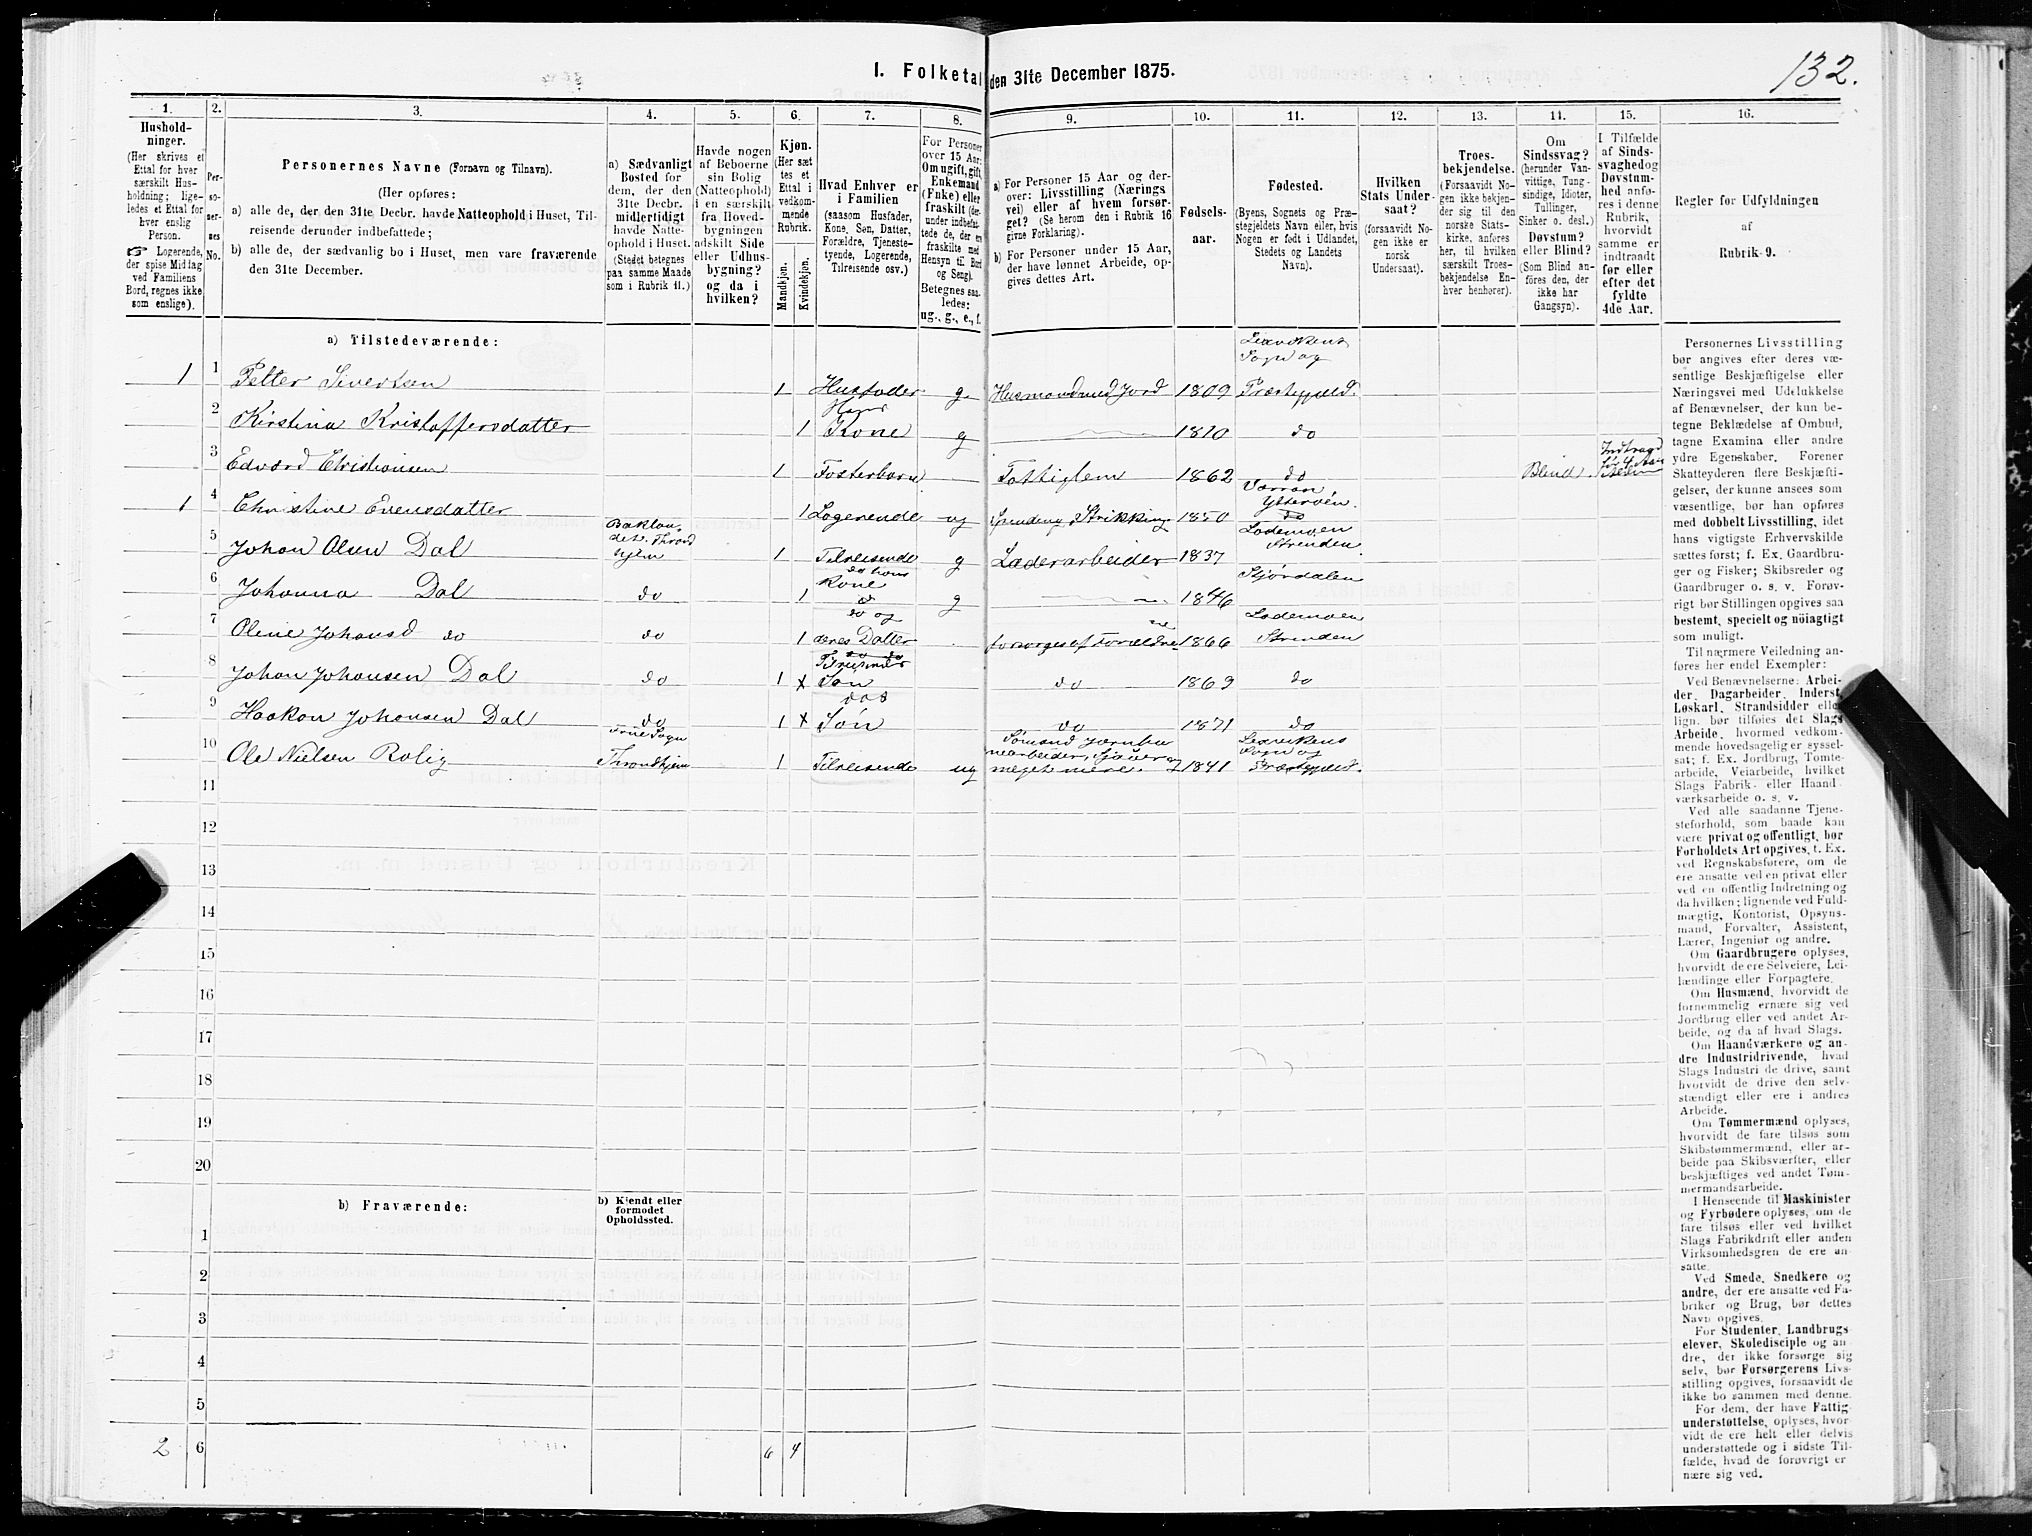 132.
I. Folketal den 31te December 1875.
1. 2. 3. 4. 5. 6. 7. 8. 9. 10. 11. 12. 13. 11. 15. 16.
Husholdninger.
(Her skrives et
Ettal for hver
særskilt Husholdning;
ligeledes et Ettal for
hver enslig
Person.
☞ Logerende,
der spise Midlag
ved Familiens
Bord, regnes ikke
som enslige).
Personernes No.
Personernes Navne (Fornavn og Tilnavn).
(Her opføres:
a) alle de, der den 31te Decbr. havde Natteophold i Huset, Tilreisende derunder indbefattede;
b) alle de, der sædvanlig bo i Huset, men vare fraværende
den 31te December.
a) Sædvanligt
Bosted for
dem, der den
31te Decbr.
midlertidigt
havde Natteophold i Huset.
(Stedet betegnes
paa samme Maade
som i Rubrik 11.)
Havde nogen
af Beboerne
sin Bolig
(Natteophold)
i en særskilt
fra Hovedbygningen
adskilt Side
eller Udhusbygning?
og da i
hvilken?
Kjøn.
(Her sættes et
Ettal i
vedkommende
Rubrik.
Mandkjøn.
Kvindekjøn.
Hvad Enhver er
i Familien
(saasom Husfader,
Kone, Søn, Datter,
Forældre, Tjenestetyende, Logerende,
Tilreisende osv.)
For Personer
over 15 Aar:
Om ugift, gift,
Enkemand
(Enke) eller
fraskilt (derunder indbefattede de, der ere
fraskilte med
Hensyn til Bord
og Seng).
Betegnes saaledes:
ug., g., e., f.
a) For Personer 15 Aar og derover: Livsstilling (Næringsvei) eller af hvem forsørget? (Se herom den i Rubrik 16
givne Forklaring).
b) For Personer under 15 Aar,
der have lønnet Arbeide, opgives dettes Art.
Fødselsaar.
Fødested.
(Byens, Sognets og Præstegjeldets Navn eller, hvis
Nogen er født i Udlandet,
Stedets og Landets
Navn).
Hvilken
Stats Undersaat?
(forsaavidt Nogen ikke er
norsk
Undersaat).
Troesbekjendelse.
(Forsaavidt Nogen ikke bekjender sig til den
norske Statskirke, anføres
her, til hvilken
særskilt Troesbekjendelse Enhver henhører).
Om
Sindssvag?
(herunder Vanvittige, Tungsindige, Idioter,
Tullinger,
Sinker o. desl.)
Døvstum?
eller Blind?
(Som Blind anføres den, der
ikke har
Gangsyn).
I Tilfælde
af Sindssvaghed og
Døvstumhed anføres i denne
Rubrik,
hvorvidt
samme er
indtraadt
før eller
efter det
fyldte
4de Aar.
Regler for Udfyldningen
af
Rubrik 9.
a) Tilstedeværende:
1 1 Petter Sivertsen 1 Husfader g Husmand med Jord 1809 Lexvikens Sogn og Præstegjeld.
2 Kirstina Kristoffersdatter 1 Hans Kone g 1810 do
3 Edvard Christiansen 1 Fosterbarn Fattiglem 1862 do Blind.
1 4 Christine Evensdatter 1 Logerende ug Spinding, Strikking 1850 Ytterøen
5 Johan Olsen Dal Baklandet. Throndhjem 1 Tilreisende g Læderarbeider 1837 Lademoen Stranden.
6 Johanna Dal do 1 do hans Kone g 1846 Stjørdalen
7 Oline Johansd do do 1 do og deres Datter forsørges af Forældrene 1866 Lademoen Stranden
8 Johan Johansen Dal do 1 Søn do 1869 do
9 Haakon Johansen Dal do 1 Søn do 1871 do
10 Ole Nielsen Rolig Throndhjem 1 Tilreisende ug 1841 Lexvikens Sogn og Præstegjeld.
11
12
13
14
15
16
17
18
19
20
b) Fraværende:
b) Kjendt eller
formodet
Opholdssted.
1
2
3
4
5
2 6 6 4
Personernes Livsstilling
bør angives efter deres væsentlige Beskjæftigelse eller
Næringsvei med Udelukkelse
af Benævnelser, der kun betegne Beklædelse af Ombud,
tagne Examina eller andre
ydre Egenskaber. Forener
Skatteyderen flere Beskjæftigelser, der kunne ansees som
væsentlige, bør han opføres
med dobbelt Livsstilling, idet
hans vigtigste Erhvervskilde
sættes først; f. Ex. Gaardbruger og Fisker; Skibsreder og
Gaardbruger o. s. v. Forøvrigt bør Stillingen opgives saa
bestemt, specielt og nøiagtigt
som muligt.
Til nærmere Veiledning anføres her endel Exempler:
Ved Benævnelserne: Arbeider, Dagarbeider, Inderst,
Løskarl, Strandsidder eller
lign. bør tilføies det Slags
Arbeide, hvormed vedkommende hovedsagelig er sysselsat; f. Ex. Jordbrug, Tomtearbeide, Veiarbeide, hvilket
Slags Fabrik- eller Haandværksarbeide o. s. v.
Ved alle saadanne Tjenesteforhold, som baade kan
være privat og offentligt, bør
Forholdets Art opgives, t. Ex.
ved Regnskabsførere, om de
ere ansatte ved en privat eller
ved en offentlig Indretning og
da hvilken; lignende ved Fuldmægtig, Kontorist, Opsynsmand, Forvalter, Assistent,
Lærer, Ingeniør og andre.
Om Gaardbrugere oplyses,
hvorvidt de ere Selveiere, Leilændinge eller Forpagtere.
Om Husmænd, hvorvidt de
fornemmelig ernære sig ved
Jordbrug eller ved andet Arbeide, og da af hvad Slags.
Om Haandværkere og andre Industridrivende, hvad
Slags Industri de drive, samt
hvorvidt de drive den selvstændigt eller ere i andres
Arbeide.
Om Tømmermænd oplyses,
hvorvidt de fare tilsøs som
Skibstømmermænd, eller arbeide paa Skibsværfter, eller
beskjæftiges ved andet Tømmermandsarbeide.
I Henseende til Maskinister
og Fyrbødere oplyses, om de
fare tilsøs eller ved hvilket
Slags Fabrikdrift eller anden
Virksomhedsgren de ere ansatte.
Ved Smede, Snedkere og
andre, der ere ansatte ved Fabriker og Brug, bør dettes
Navn opgives.
For Studenter, Landbrugselever, Skoledisciple og andre, der ikke forsørge sig
selv, bør Forsørgerens Livsstilling opgives, forsaavidt de
ikke bo sammen med denne.
For dem, der have Fattigunderstøttelse, oplyses, hvorvidt de ere helt eller delvis
understøttede og i sidste Tilfælde, hvad de forøvrigt ernære sig ved.